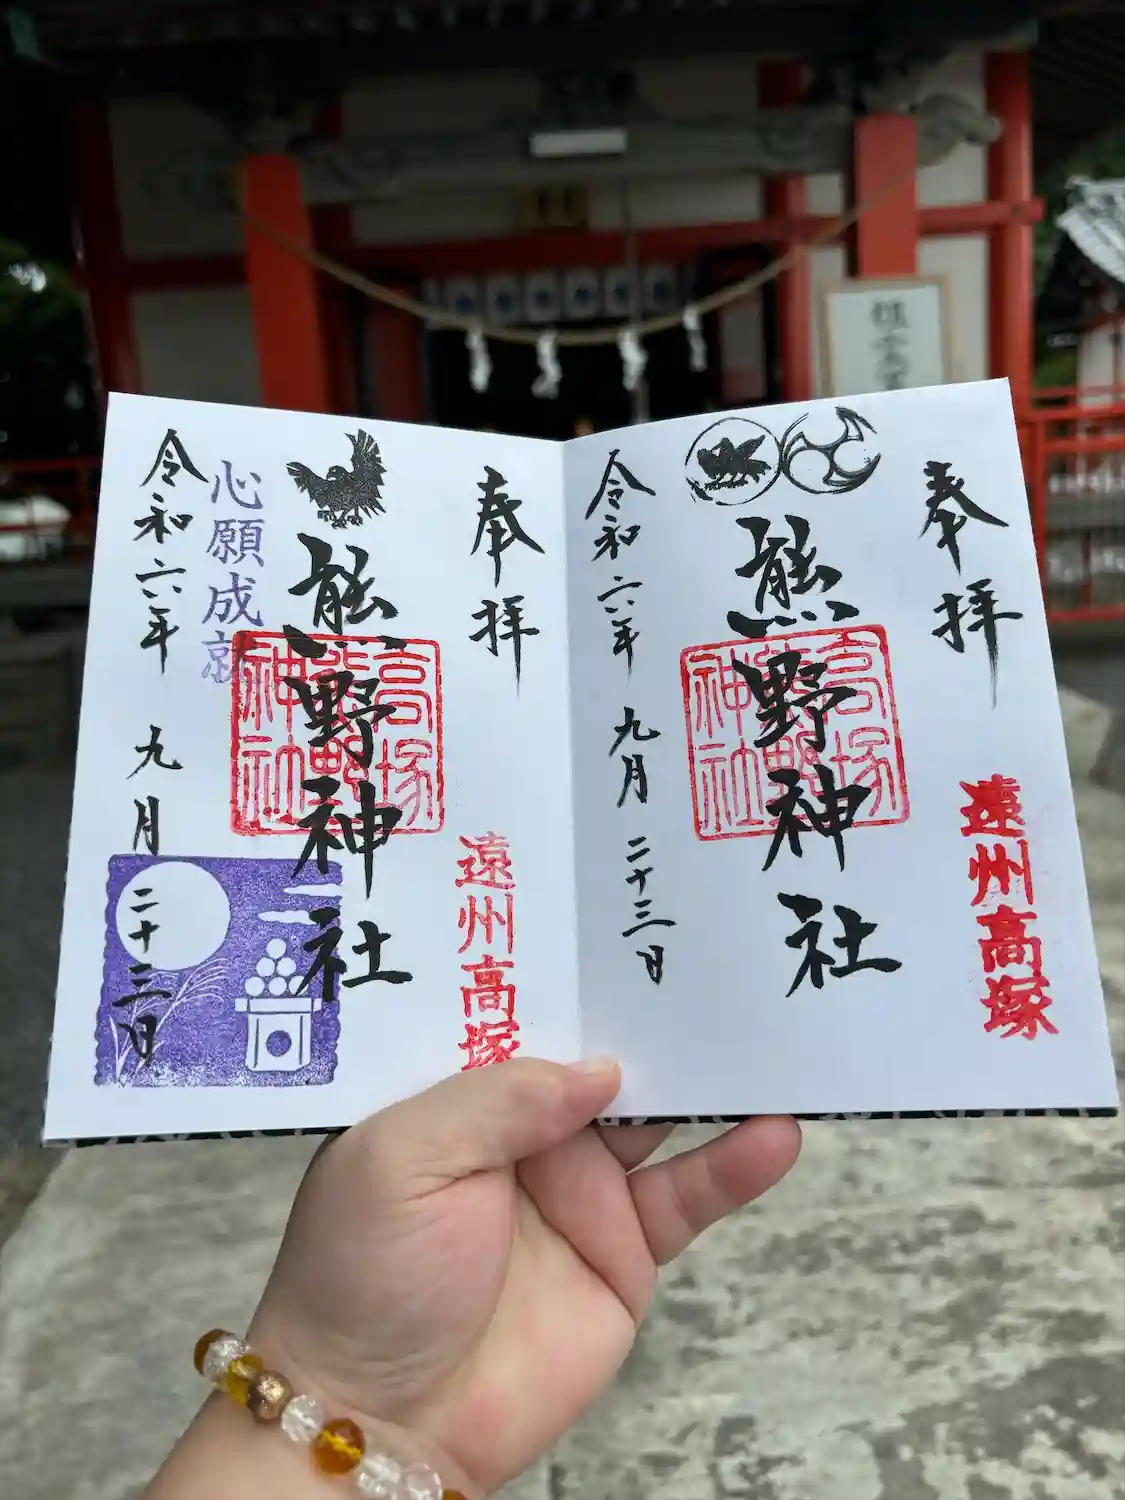 奉拝
熊野神社
高塚熊野神社
遠州高塚
令和六年 九月 二十三日
奉拝
熊野神社
高塚熊野神社
遠州高塚
心願成就
令和六年 九月 二十三日